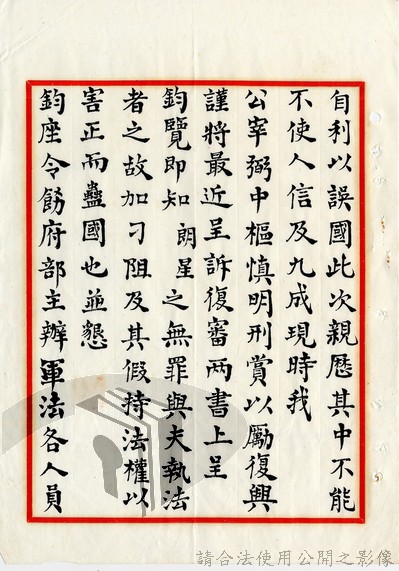 自利以誤國此次親歷其中不能
不使人信及九成現時我
公宰弼中樞慎明刑賞以勵復興
謹將最近呈訴復審兩書上呈
鈞覽即知 朗星 之無罪與夫執法
者之故加刁阻及其假持法權以
害正而蠱國也並懇
鈞座令飭府部主辦軍法各人員
請合法使用公開之影像